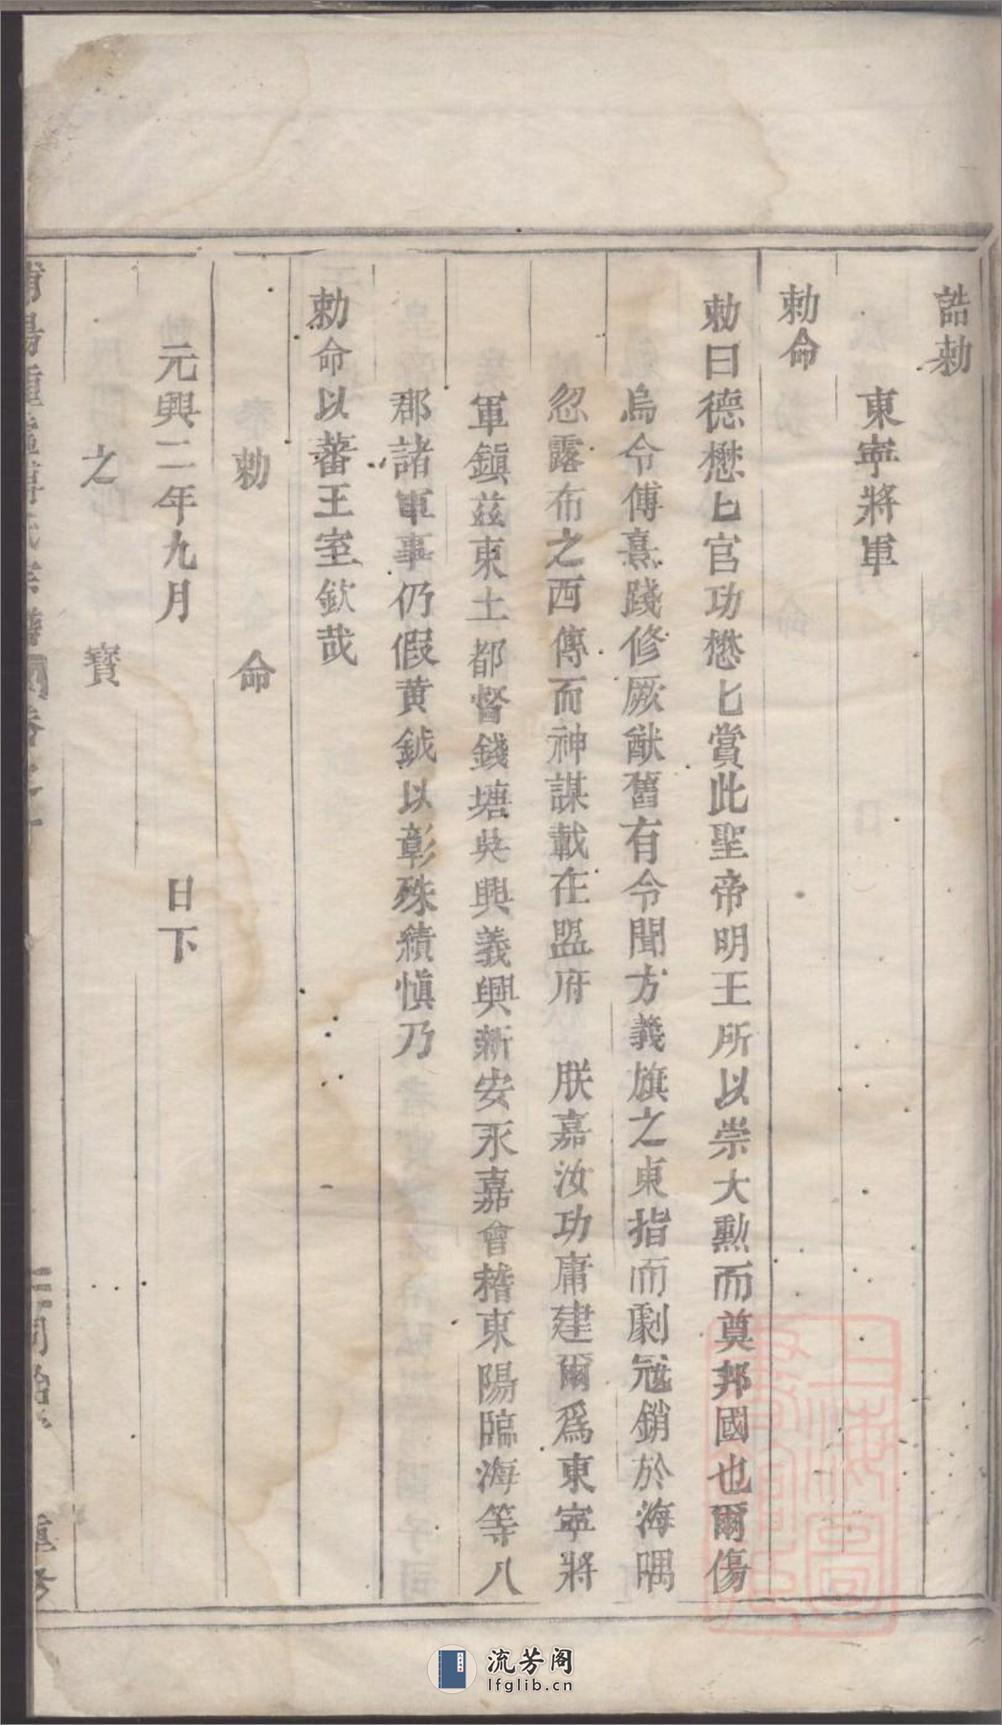 誥勅
東寧將軍
勅命
勅曰德懋匕官功懋匕賞此聖帝明王所以崇大勲而奠邦國也爾傷
烏令傅熹踐修厥猷舊有令聞方義旗之東指而劇冦銷於海隅
忽露布之西傳而神謀載在盟府 朕嘉汝功庸建爾爲東寧將
軍鎮茲東土都督錢塘吳興義興新安永嘉會稽東陽臨海等八
郡諸軍事仍假黄鉞以彰殊績慎乃
勅命以蕃王室欽哉
勅 命
元興二年九月 日下
之 寳
氏宗譜 卷之一 同治 重修
流芳阁
lfglib.cn